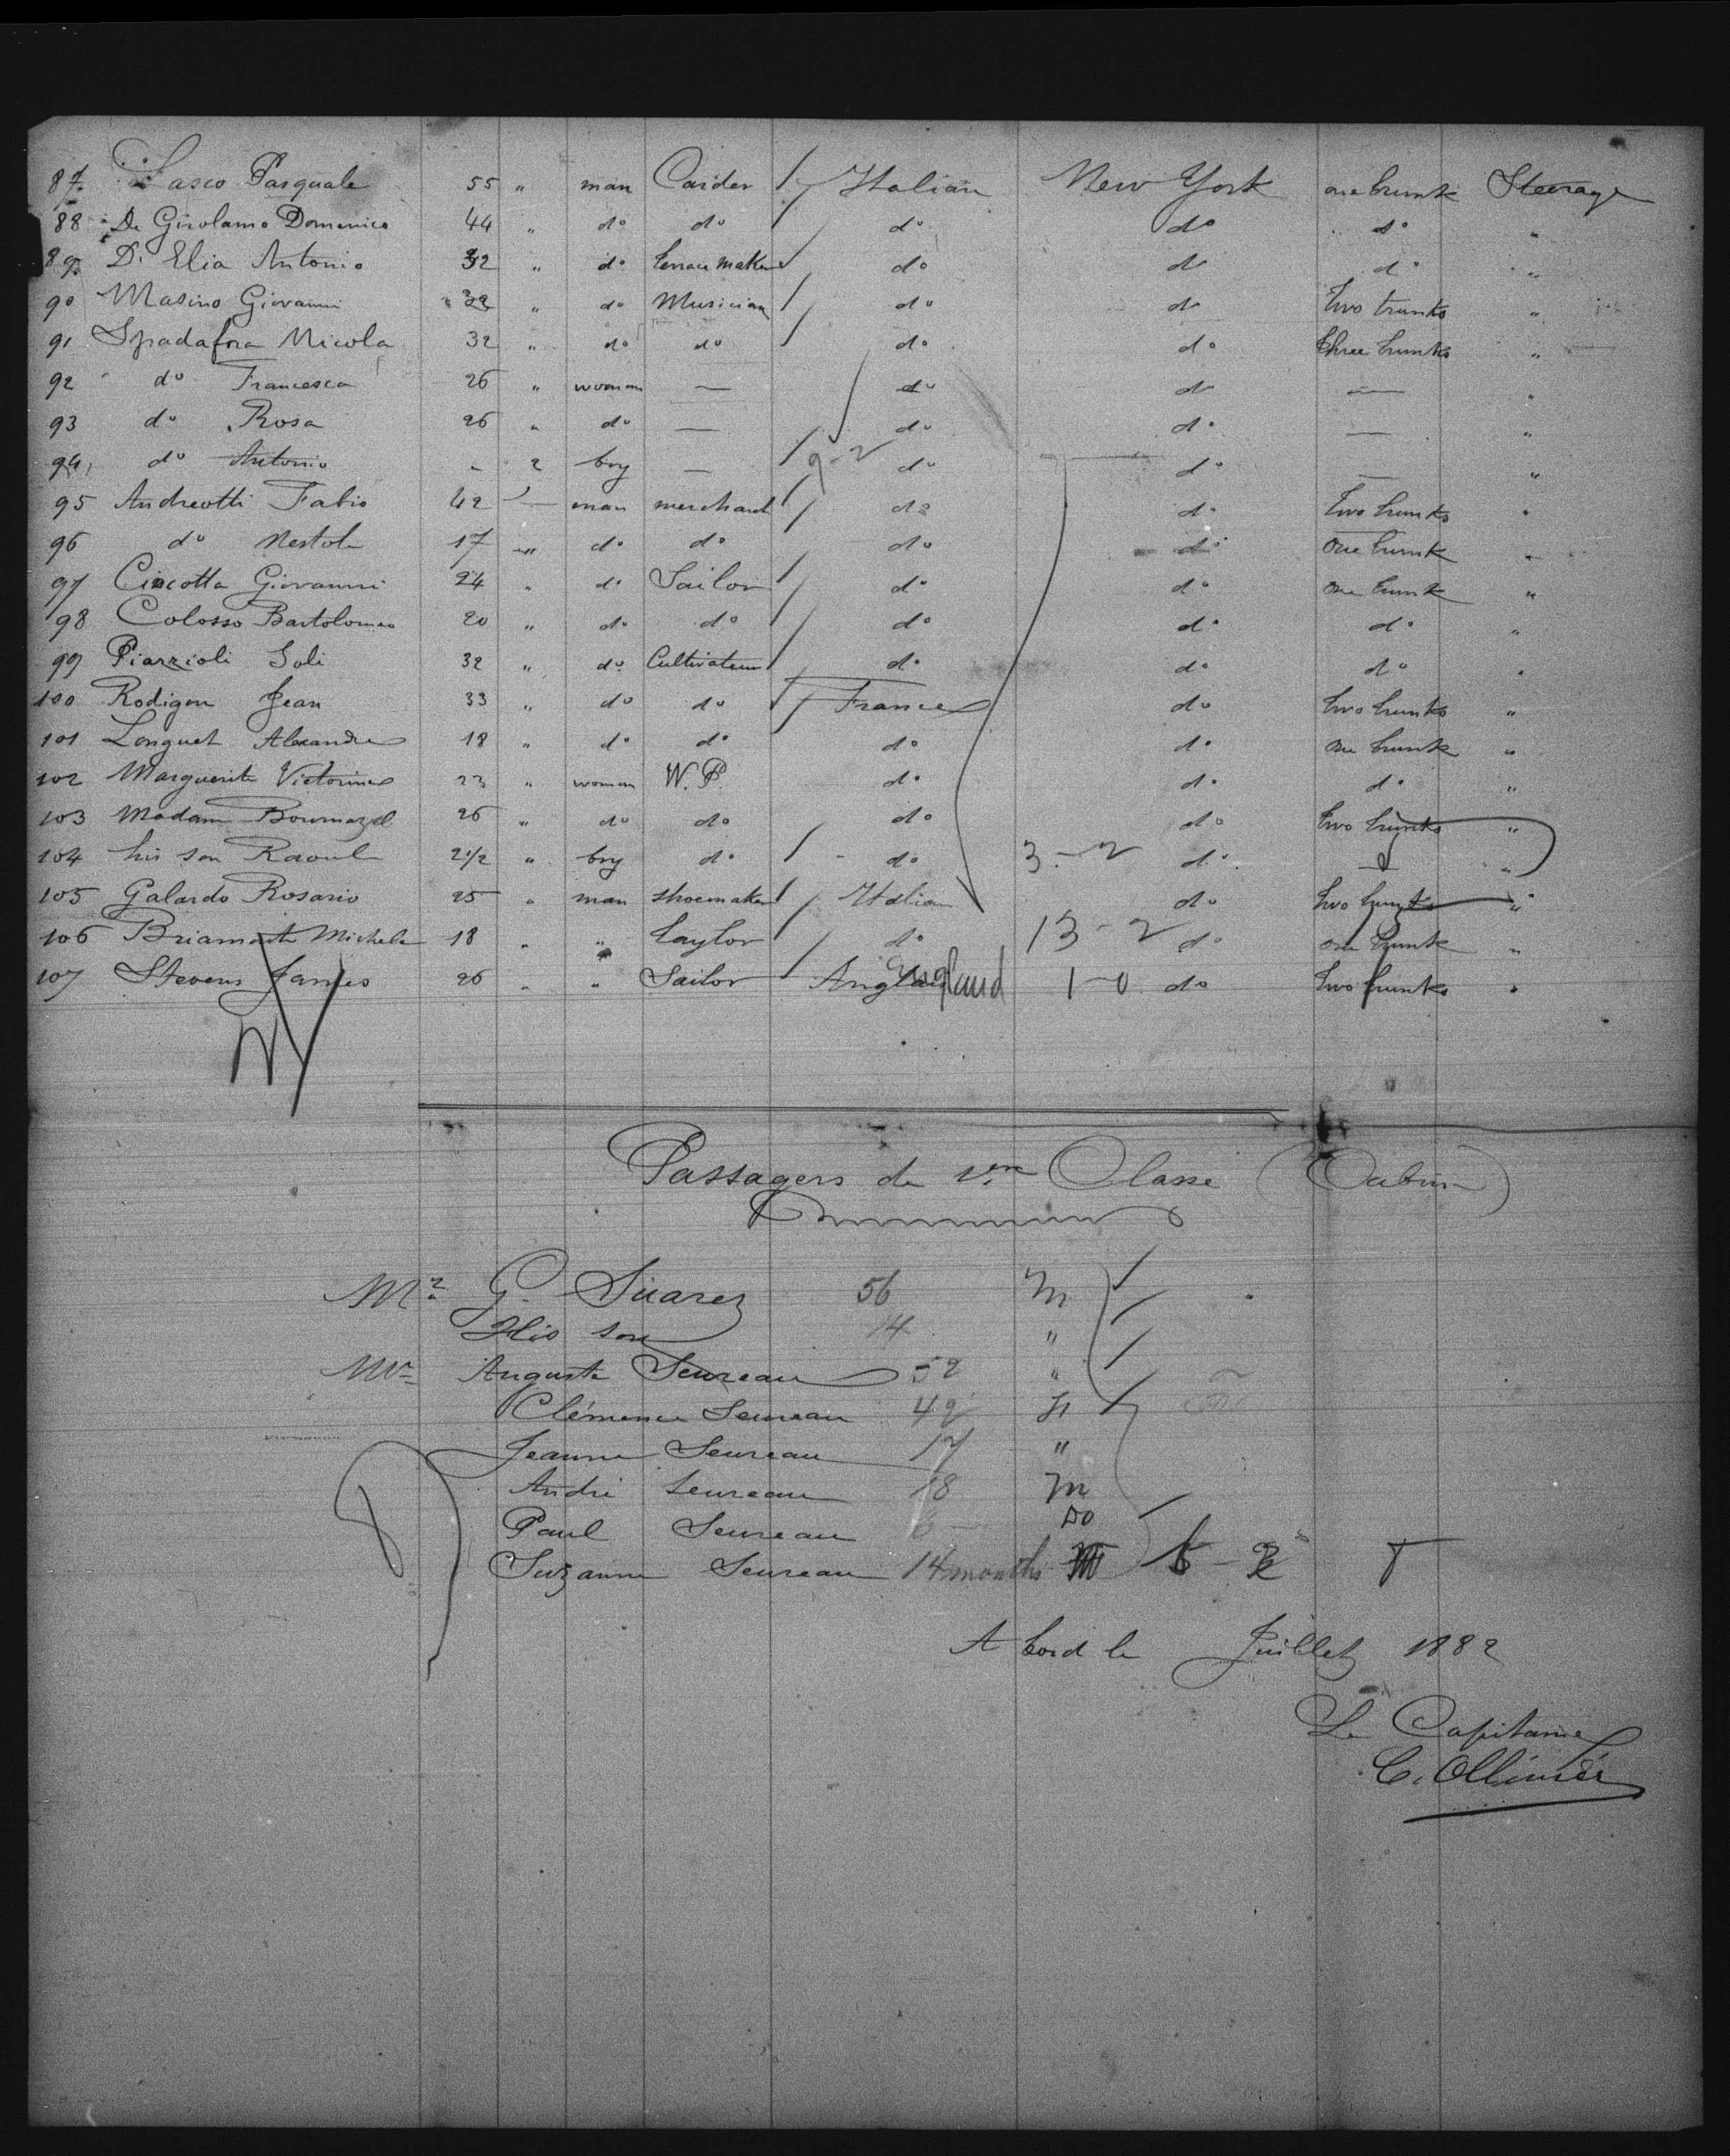 87. Sasco Pasquale 55 " man Carder Italian New York one trunk Steerage
88 De Girolamo Domenico 44 " do do do do do "
89. D' Elia Antonio 32 " do terrace maker do do do "
90 Masino Giovanni 32 " do Musician do do two trunks "
91 Spadafora Nicola 32 " do do do do three trunks "
92 do Francesca 26 " woman — do do — "
93 do Rosa 26 " do — do do — "
94 do Antonio - 2 boy — 9-2 do do — "
95 Andreotti Fabio 42 — man merchant do do Two trunks "
96 do Nestola 17 " do do do do One trunk "
97 Cincotta Giovanni 24 " do Sailor do do one trunk "
98 Colosso Bartolomeo 20 " do do do do do "
99 Piazzioli Soli 32 " do Cultivateur do do do "
100 Rodigou Jean 33 " do do France do two trunks "
101 Longuet Alexandre 18 " do do do do one trunk "
102 Marguerite Victorine 23 " woman W.P. do do do "
103 Madam Bournazel 26 " do do do do two trunks "
104 his son Raoul 2 1/2 " boy do do 3-2 do "
105 Galardo Rosario 25 " man shoemaker Italian do two trunks "
106 Michele 18 " " Taylor do 13-2 do one trunk "
107 Stevens James 26 " " Sailor Anglais England 1-0 do two trunks "
NY
Passagers de 1ere Classe (Cabin)
Mr G. Suarez 56 M
His son 14 "
Mr Auguste Seureau 52 "
Clémence Seureau 42 F
Jeanne Seureau 17 "
André Seureau 18 M
Paul Seureau 6 Do
Suzanne Seureau 14 months
A bord le Juillet 1882
Le Capitaine
C. Ollivier